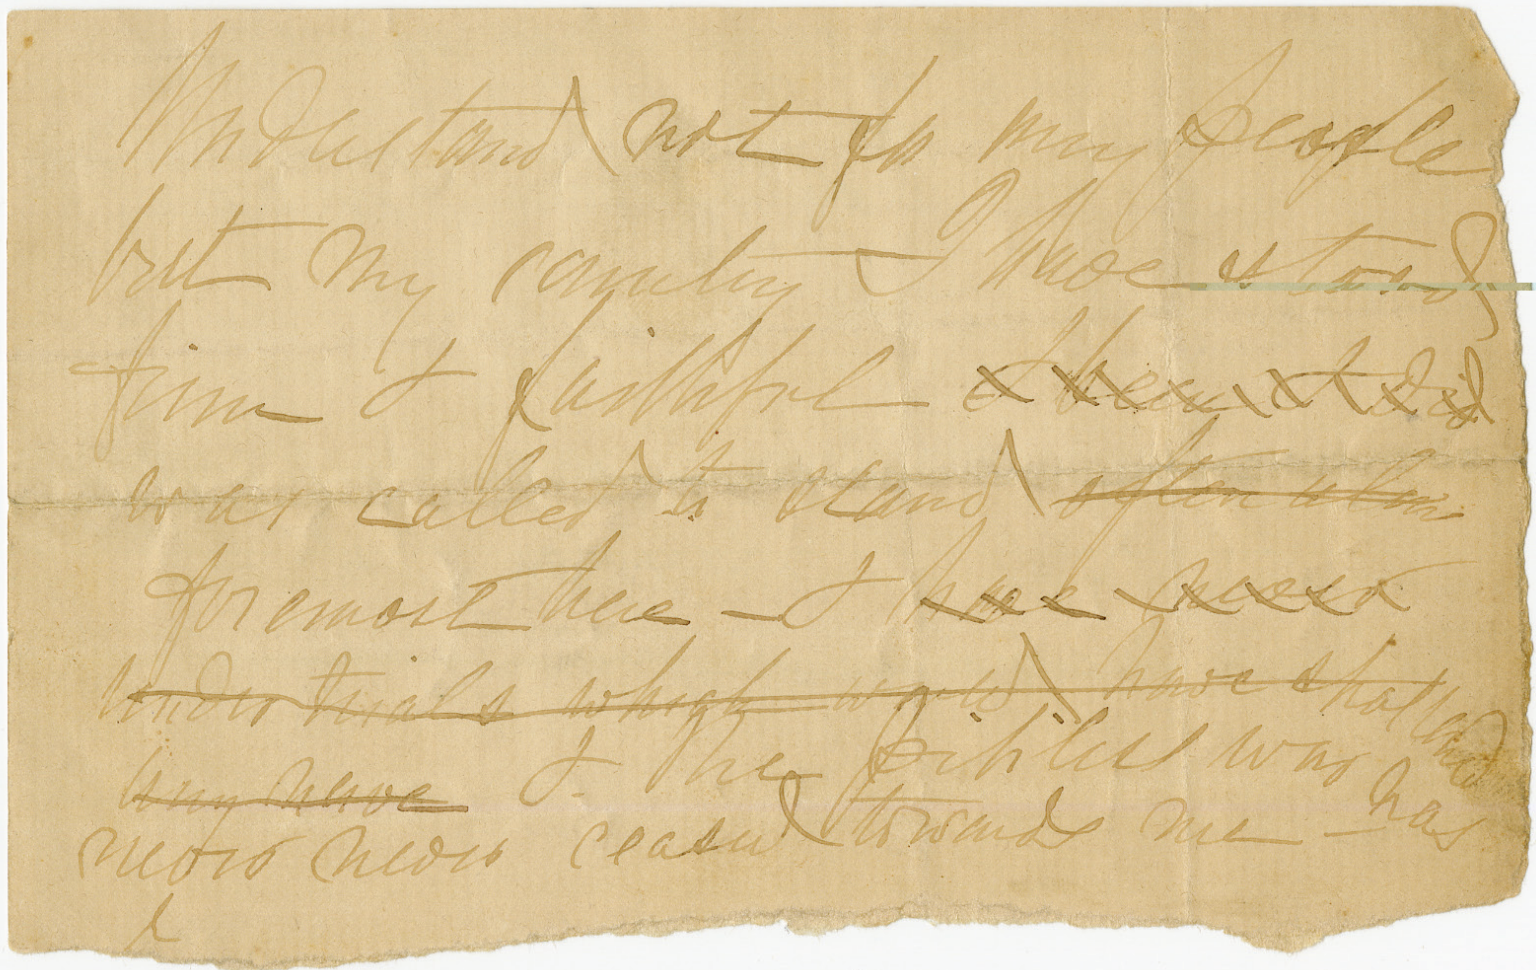 Understand not for my people
but my country I have stood
firm & faithful
was called to stand often alone
foremost here – & have never
under trials which would have shaken
any nerve & the pitiless war and
never never ceased towards me – has